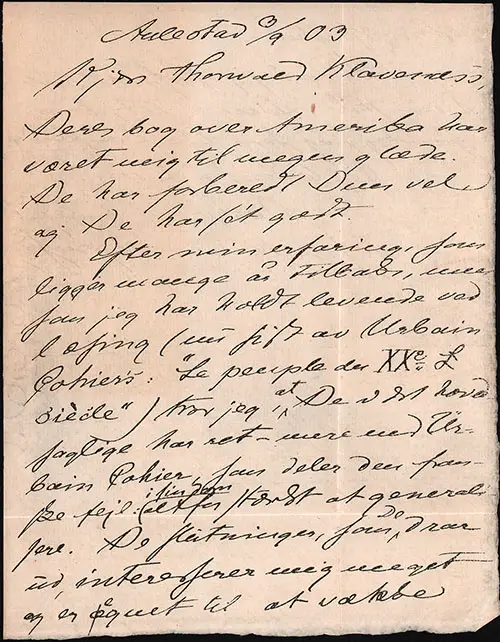 Aulestad 3/9 03
Kjære Thorvald Klaveness,
Deres bog over Amerika har
været mig til megen glæde.
De har forberedt Dem vel
og De har set godt.
Efter min erfaring, som
ligger mange år tilbake, men
som jeg har holdt levende ved
læsing (nu sist av Urbain
Gohiers: "Le peuple du XXe
siècle") tror jeg, at De i det hoved
sagelige har ret – mere end Ur-
bain Gohier, som deler den fran-
ske fejl: i sin dom altfor stærkt at generali-
sere. De slutninger, som De drar
ud, interesserer mig meget
og er egnet til at vække